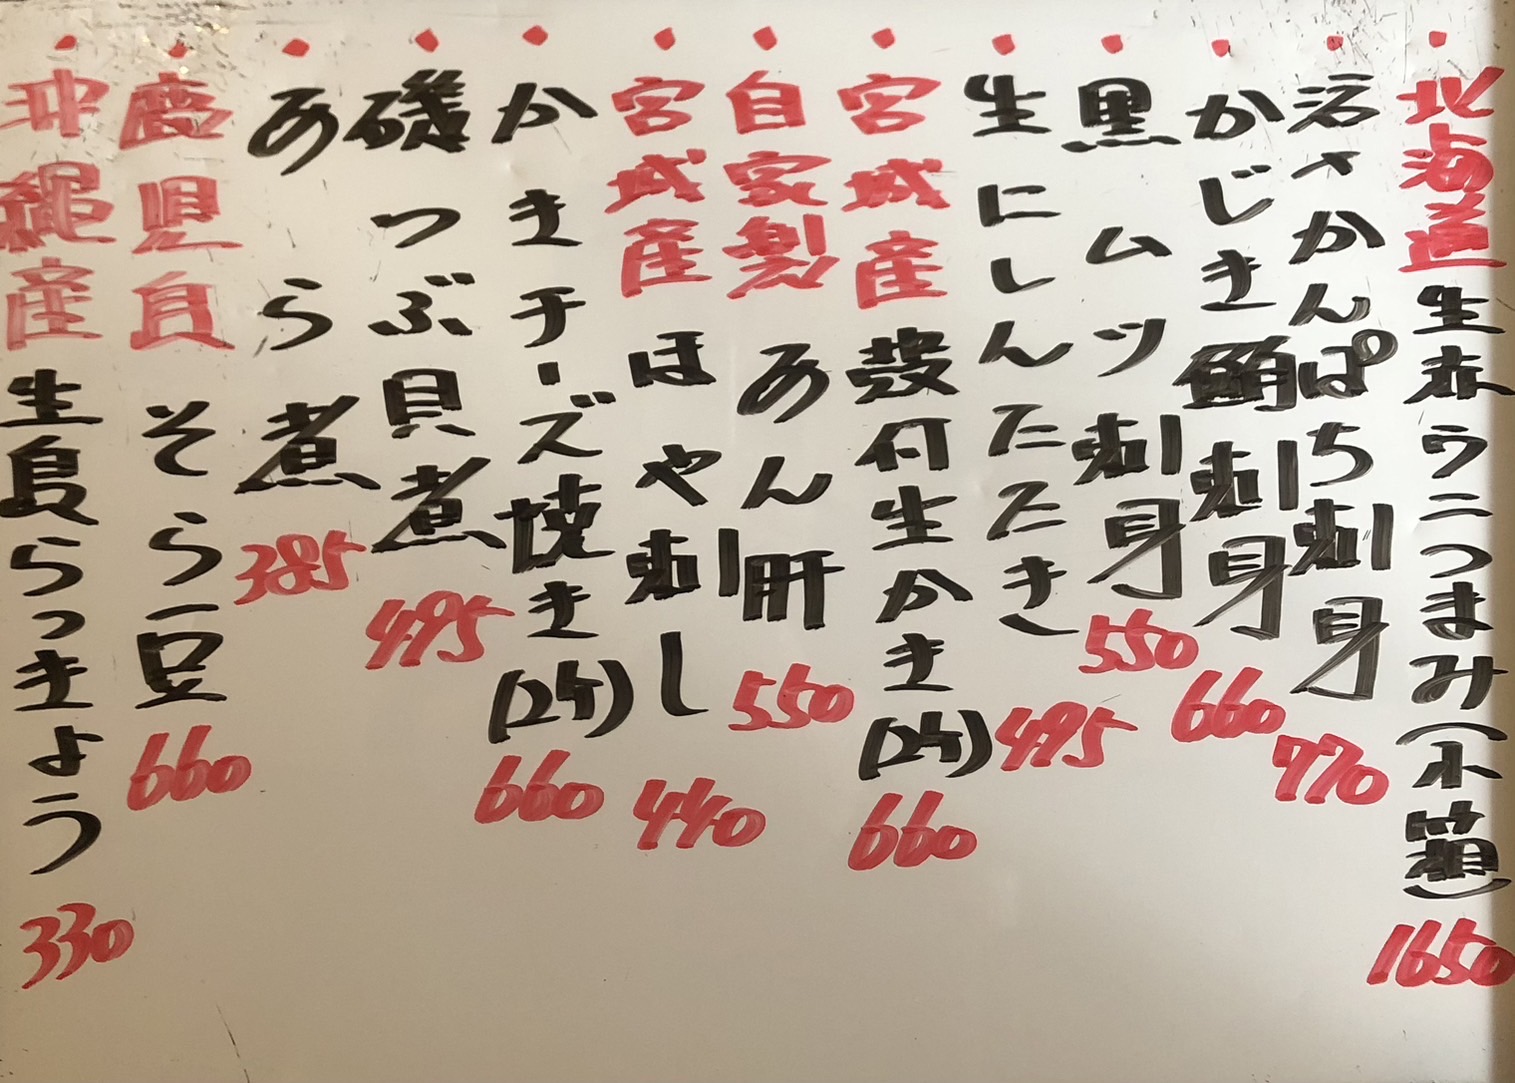 ・北海道生赤ウニつまみ(小箱) 1650
・活〆かんぱち刺身 770
・かじき鮪刺身 660
・黒ムツ刺身 550
・生にしんたたき 495
・宮城産殻付生かき(2ケ) 660
・自家製あん肝 550
・宮城産ほや刺し 440
・かきチーズ焼き(2ケ) 660
・磯つぶ貝煮 495
・あら煮 385
・鹿児島そら豆 660
・沖縄産生島らっきょう 330